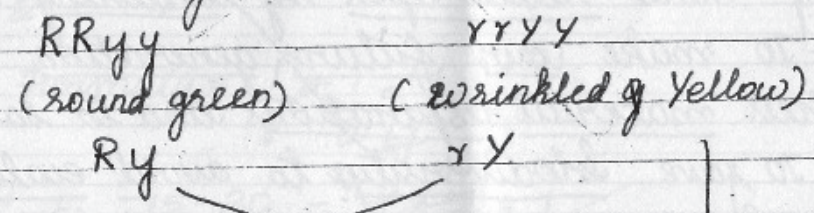 RRyy rrYY
(round green) (wrinkled Yellow)
Ry rY